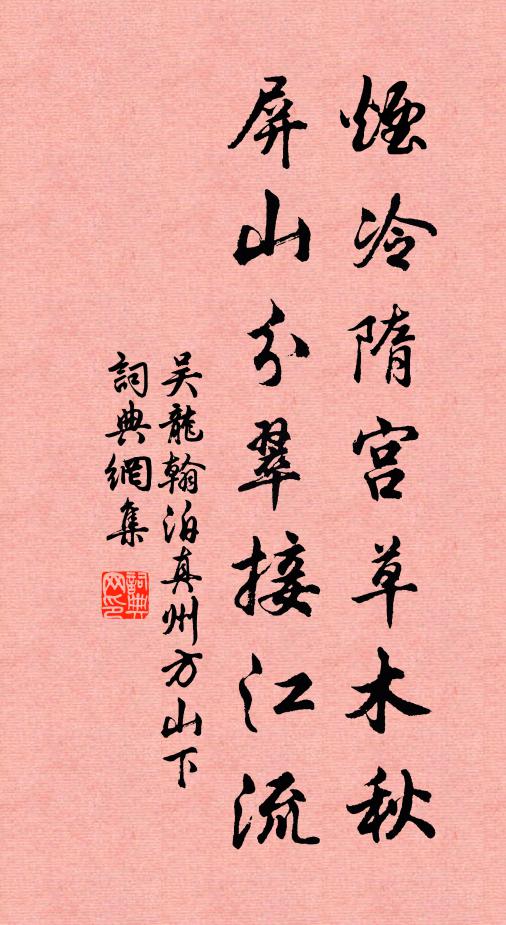 煙冷隋宫草木秋
屏山分翠接江流
吴龍翰泊真州方山下
詞典網集
詞典
网印